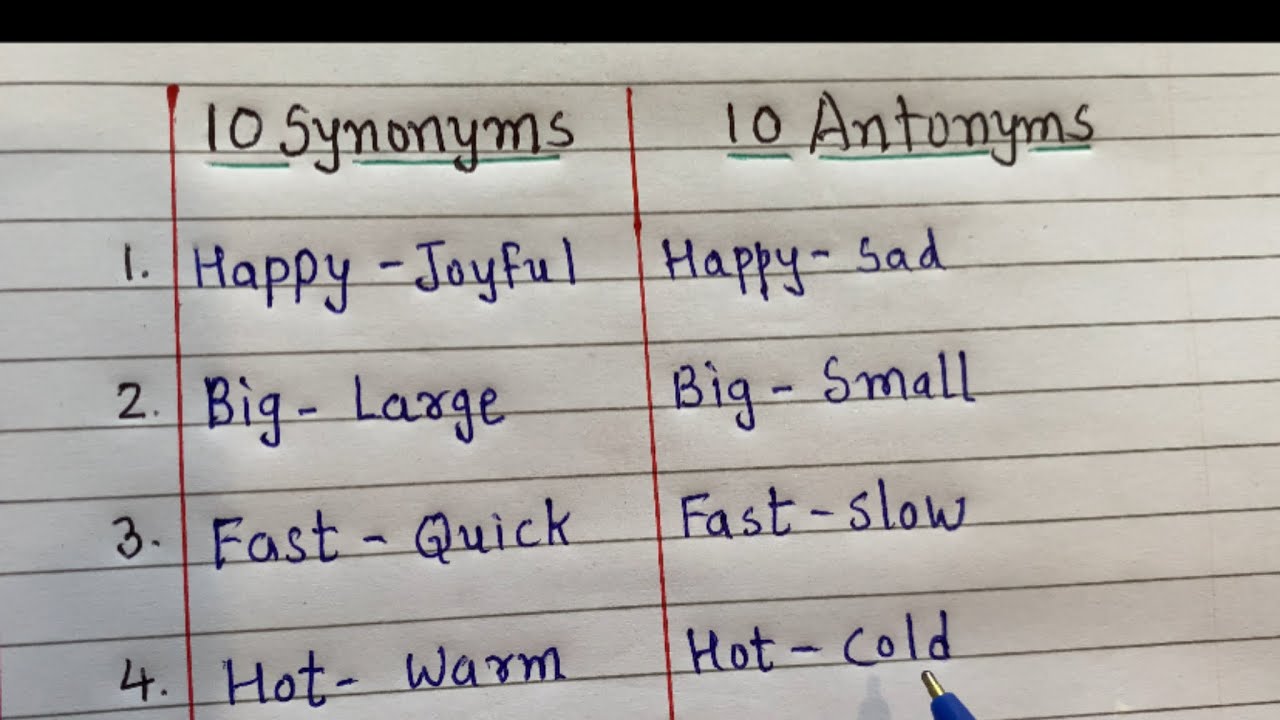 10 Synonyms 10 Antonyms
1. Happy - Joyful Happy - Sad
2. Big - Large Big - Small
3. Fast - Quick Fast - Slow
4. Hot - Warm Hot - Cold